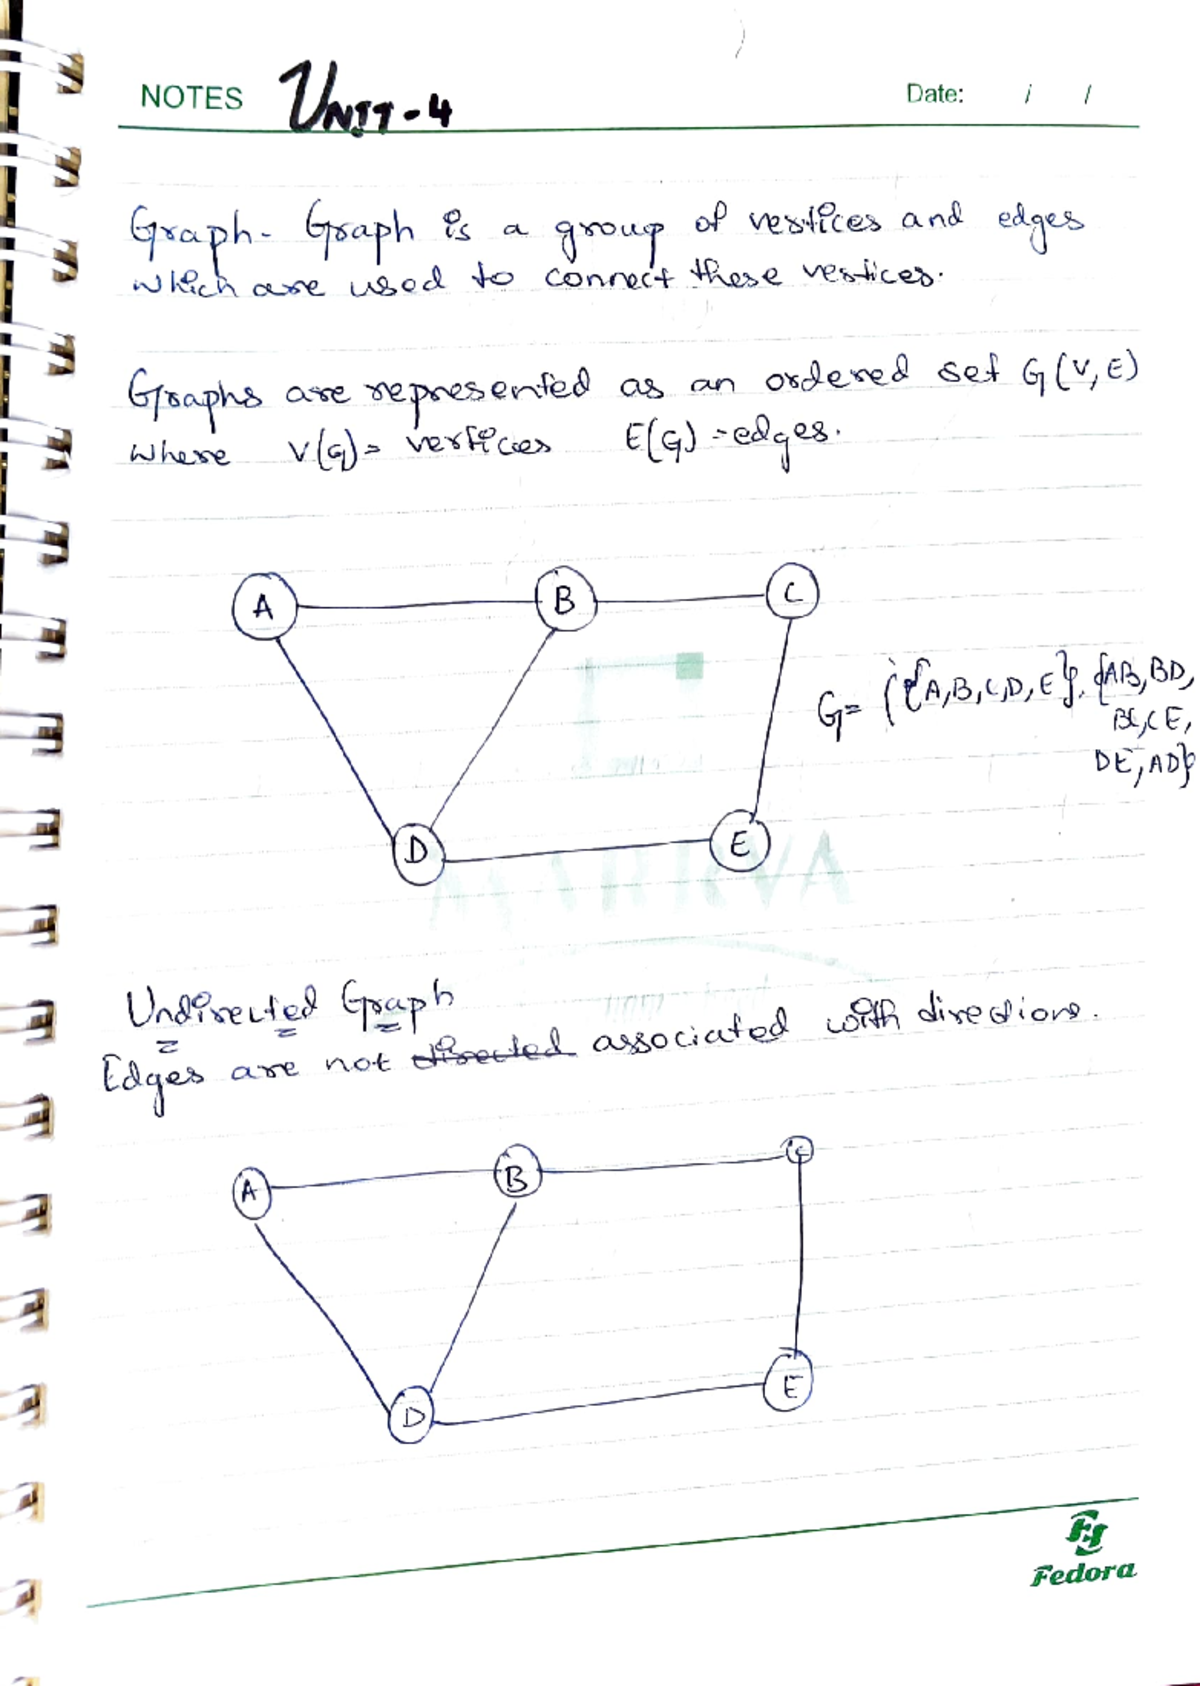 NOTES UNIT-4 Date: / /
Graph- Graph is a group of vertices and edges
which are used to connect these vertices.
Graphs are represented as an ordered set G(V, E)
where V(G)= verticies E(G) = edges.
A B C
G= ({A,B,C,D,E}, {AB,BD,
BC,CE,
DE,AD}
D E
Undirected Graph
Edges are not directed associated with directions.
A B C
D E
Fedora